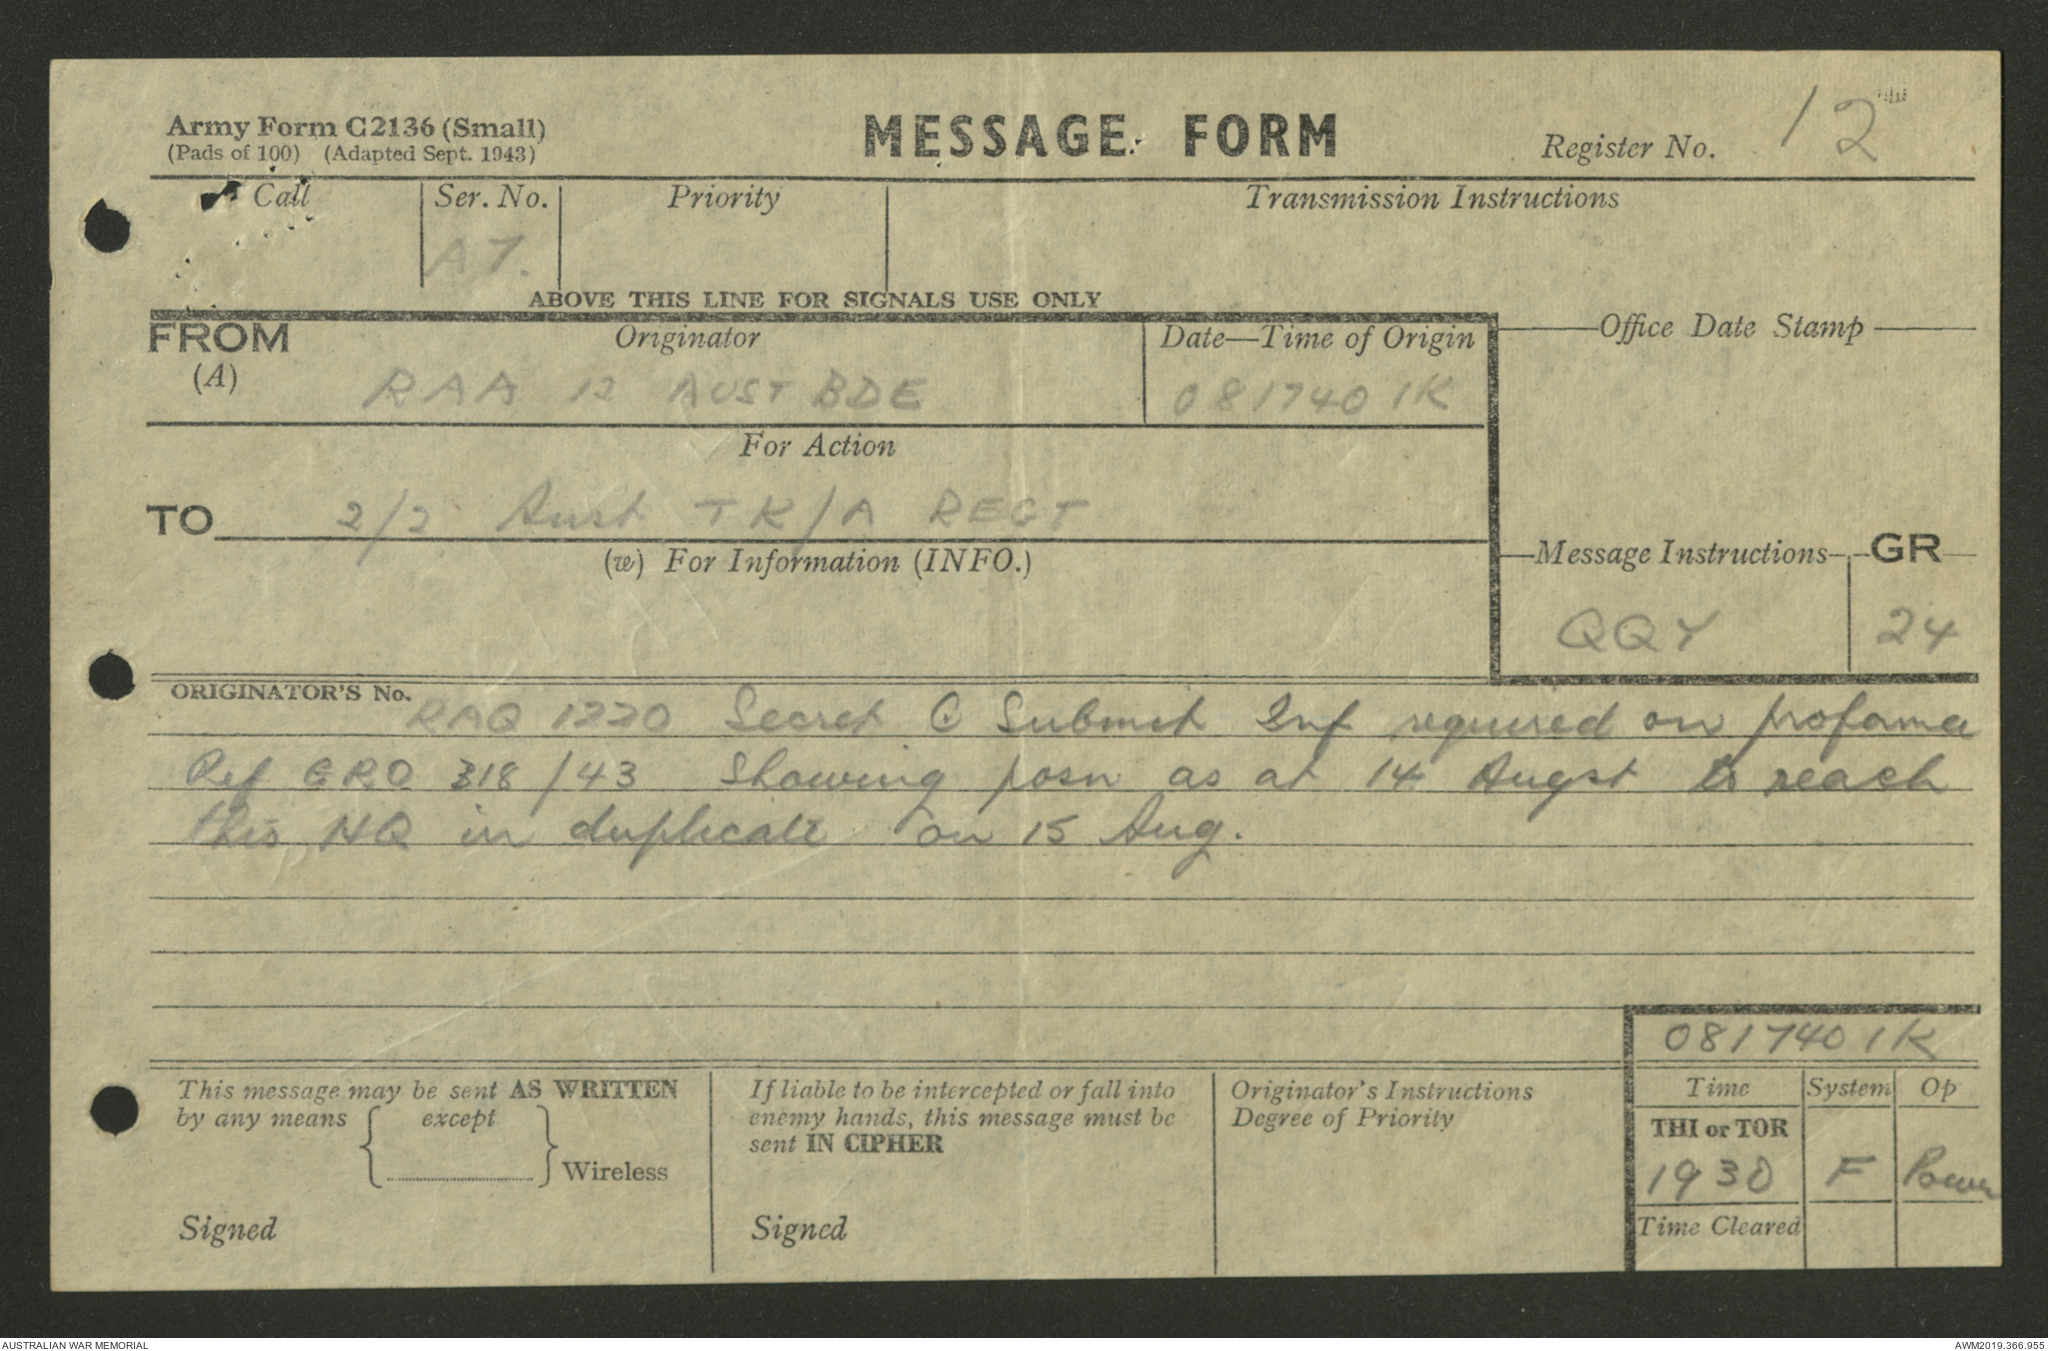 Army Form C2136 (Small)
(Pads of 100) (Adapted Sept. 1943)
MESSAGE FORM
Register No. 12
Call
Ser. No.
A7.
Priority
Transmission Instructions
ABOVE THIS LINE FOR SIGNALS USE ONLY
FROM
(A)
Originator
RAA 12 AUST BDE
Date—Time of Origin
081740 1K
Office Date Stamp
For Action
TO 2/2 Aust TK/A REGT
(w) For Information (INFO.)
Message Instructions
QQY
GR
24
ORIGINATOR'S No. RAQ 1220 Secret (.) Submit Inf required on proforma
Ref GRO 318/43 Showing posn as at 14 Augst to reach
this HQ in duplicate on 15 Aug.
081740 1K
This message may be sent AS WRITTEN
by any means { except } Wireless
Signed
If liable to be intercepted or fall into
enemy hands, this message must be
sent IN CIPHER
Signed
Originator's Instructions
Degree of Priority
Time System Op
THI or TOR
1930 F Power
Time Cleared
AUSTRALIAN WAR MEMORIAL
AWM2019.366.955